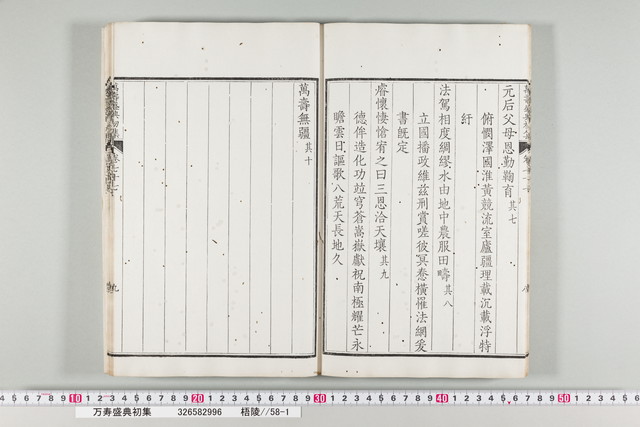 元后父母恩勤鞠育其七
俯憫澤國淮黃競流室廬疆理載沉載浮特
紆
法駕相度綢繆水由地中農服田疇其八
立國播政維茲刑賞嗟彼冥愆橫罹法網爰
書既定
睿懷悽愴宥之曰三恩洽天壤其九
德侔造化功竝穹蒼嵩嶽獻祝南極耀芒永
瞻雲日謳歌八荒天長地久
萬壽無疆其十
10 20 30 40 50
万寿盛典初集 326582996 梧陵//58-1